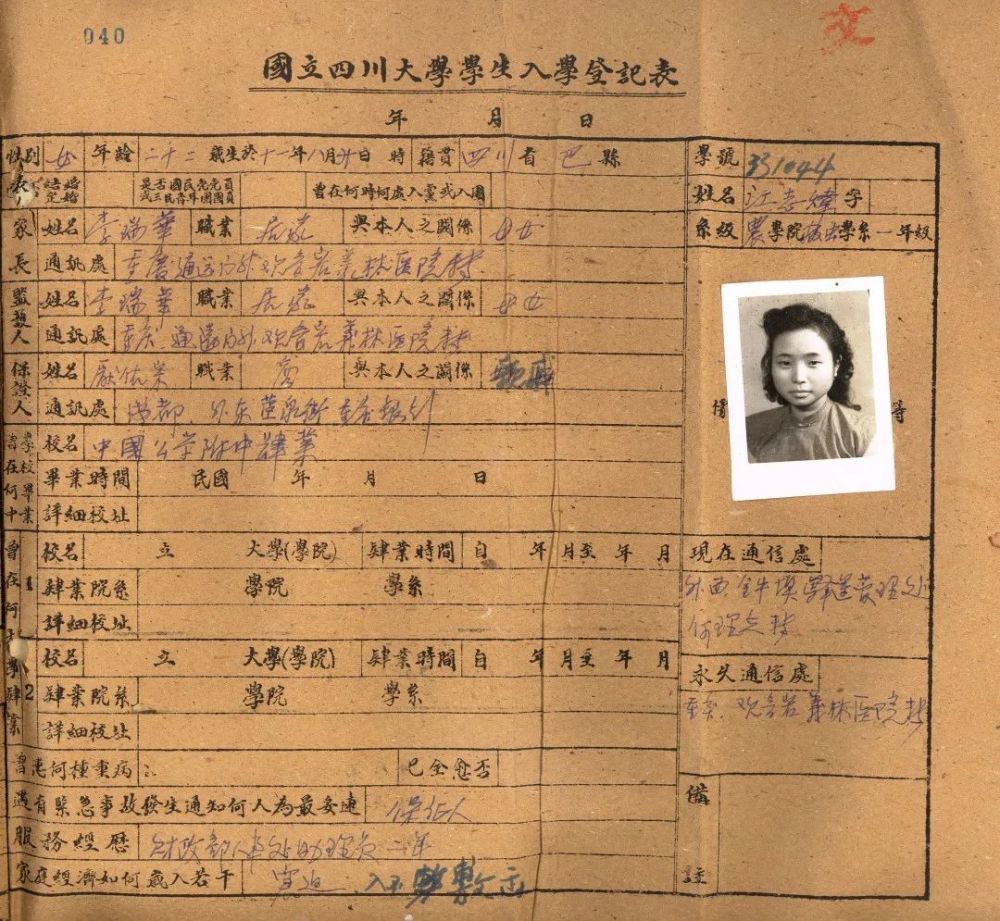 040
國立四川大學學生入學登記表
年 月 日
性別 女 年齡 二十二 歲生於十一年八月廿日 時 籍貫 四川省巴縣
結婚 定婚 是否國民党党員或三民青年團團員 曾在何時何處入黨或入團
家長 姓名 李瑞華 職業 居家 與本人之關係 母女
通訊處 重慶通远门外观音岩義林医院转
監護人 姓名 李瑞華 職業 居家 與本人之關係 母女
通訊處 重庆 通遠门外观音岩義林医院转
保證人 姓名 職業 商 與本人之關係 親戚
通訊處 成都 外东
曾在何中學校畢業 校名 中國公学附中肄業
畢業時間 民國 年 月 日
詳細校址
曾在何大學肄業
1 校名 立 大學(學院) 肄業時間 自 年 月至 年 月
肄業院系 學院 學系
詳細校址
2 校名 立 大學(學院) 肄業時間 自 年 月至 年 月
肄業院系 學院 學系
詳細校址
曾患何種重病 已全愈否
遇有緊急事故發生通知何人為最妥速 保证人
服務經歷 财政部人事处助理员 二年
家庭經濟如何歲入若干 窘迫 入不敷
學號 331044
姓名 江志煒 字
系級 農學院 學系一年級
備 等
現在通信處
外西
何理之转
永久通信處
重庆 观音岩義林医院转
備註